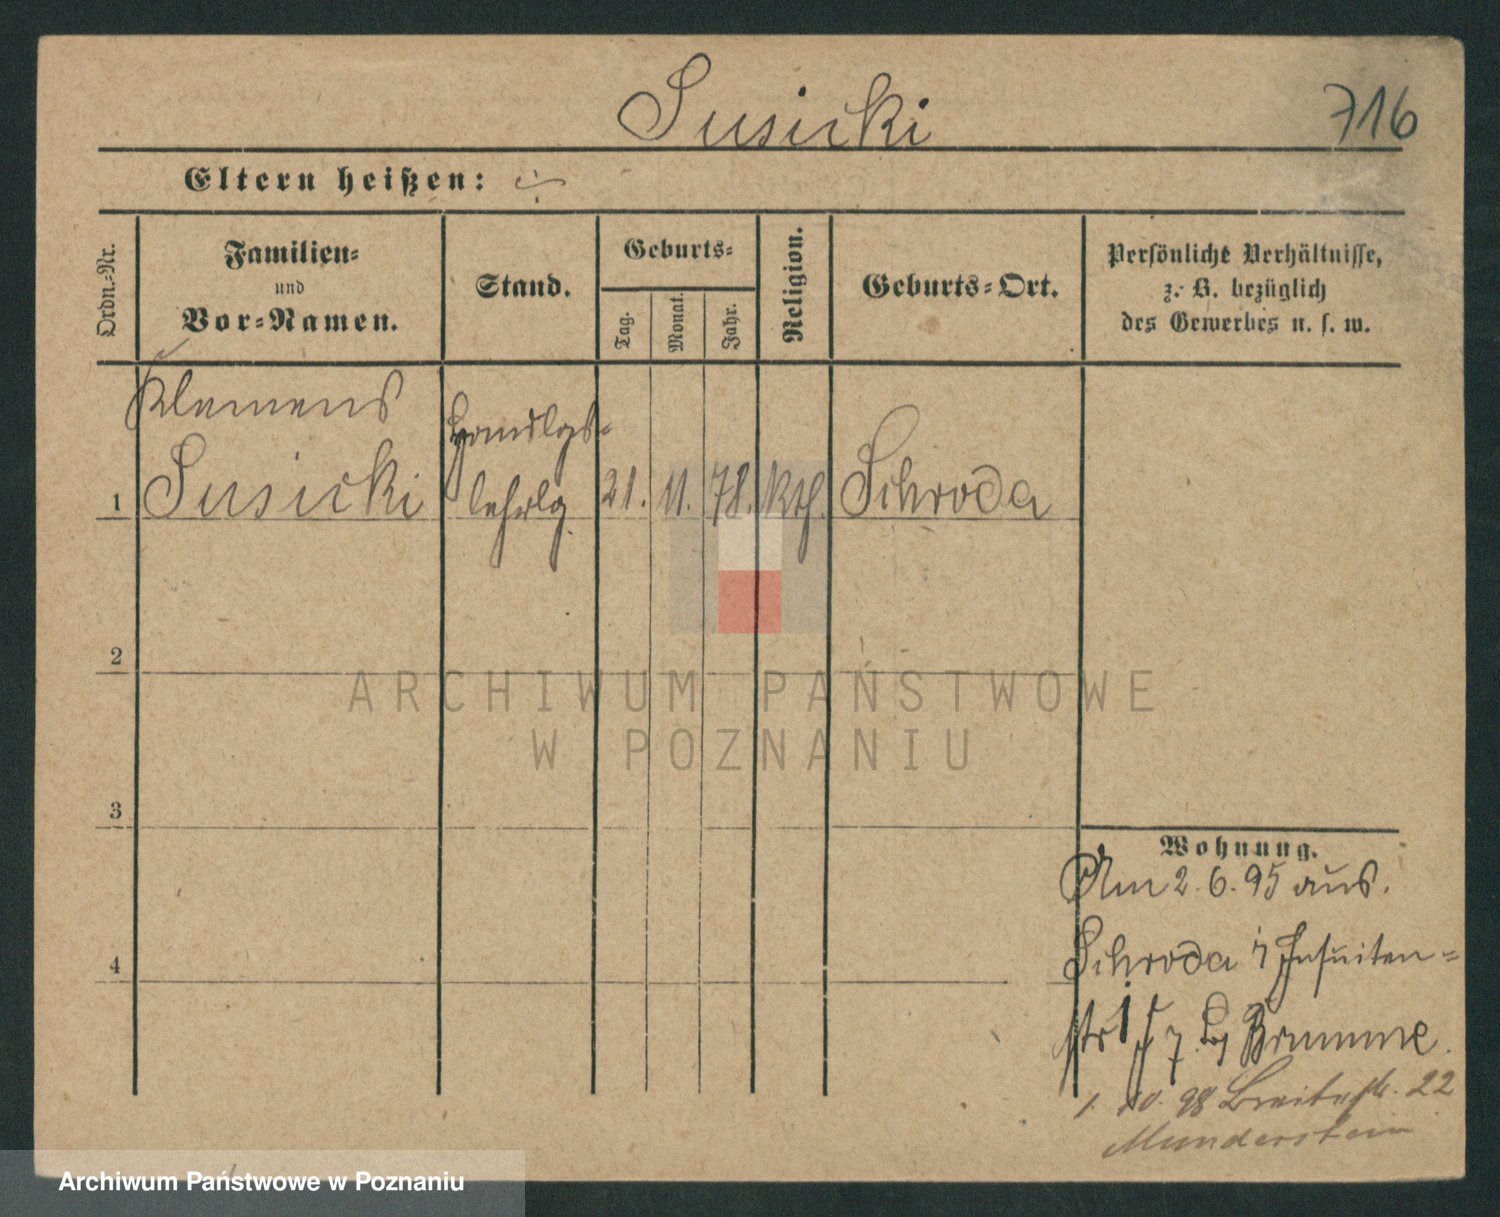 Susicki
716
Eltern heißen:
Ordn.-Nr.
Familien-
und
Vor-Namen.
Stand.
Geburts-
Tag.
Monat.
Jahr.
Religion.
Geburts-Ort.
Persönliche Verhältnisse,
z. B. bezüglich
des Gewerbes u. s. w.
Klemens
Handlgs-
1 Susicki lehrlg. 21. 11. 78. kth. Schroda
2
ARCHIWUM PAŃSTWOWE
W POZNANIU
3
Wohnung.
Am 2. 6. 95 aus.
4
Schroda Jesuiten-
str 7. Brumme.
1. 10. 98 Breitestr. 22
Munderstein
Archiwum Państwowe w Poznaniu